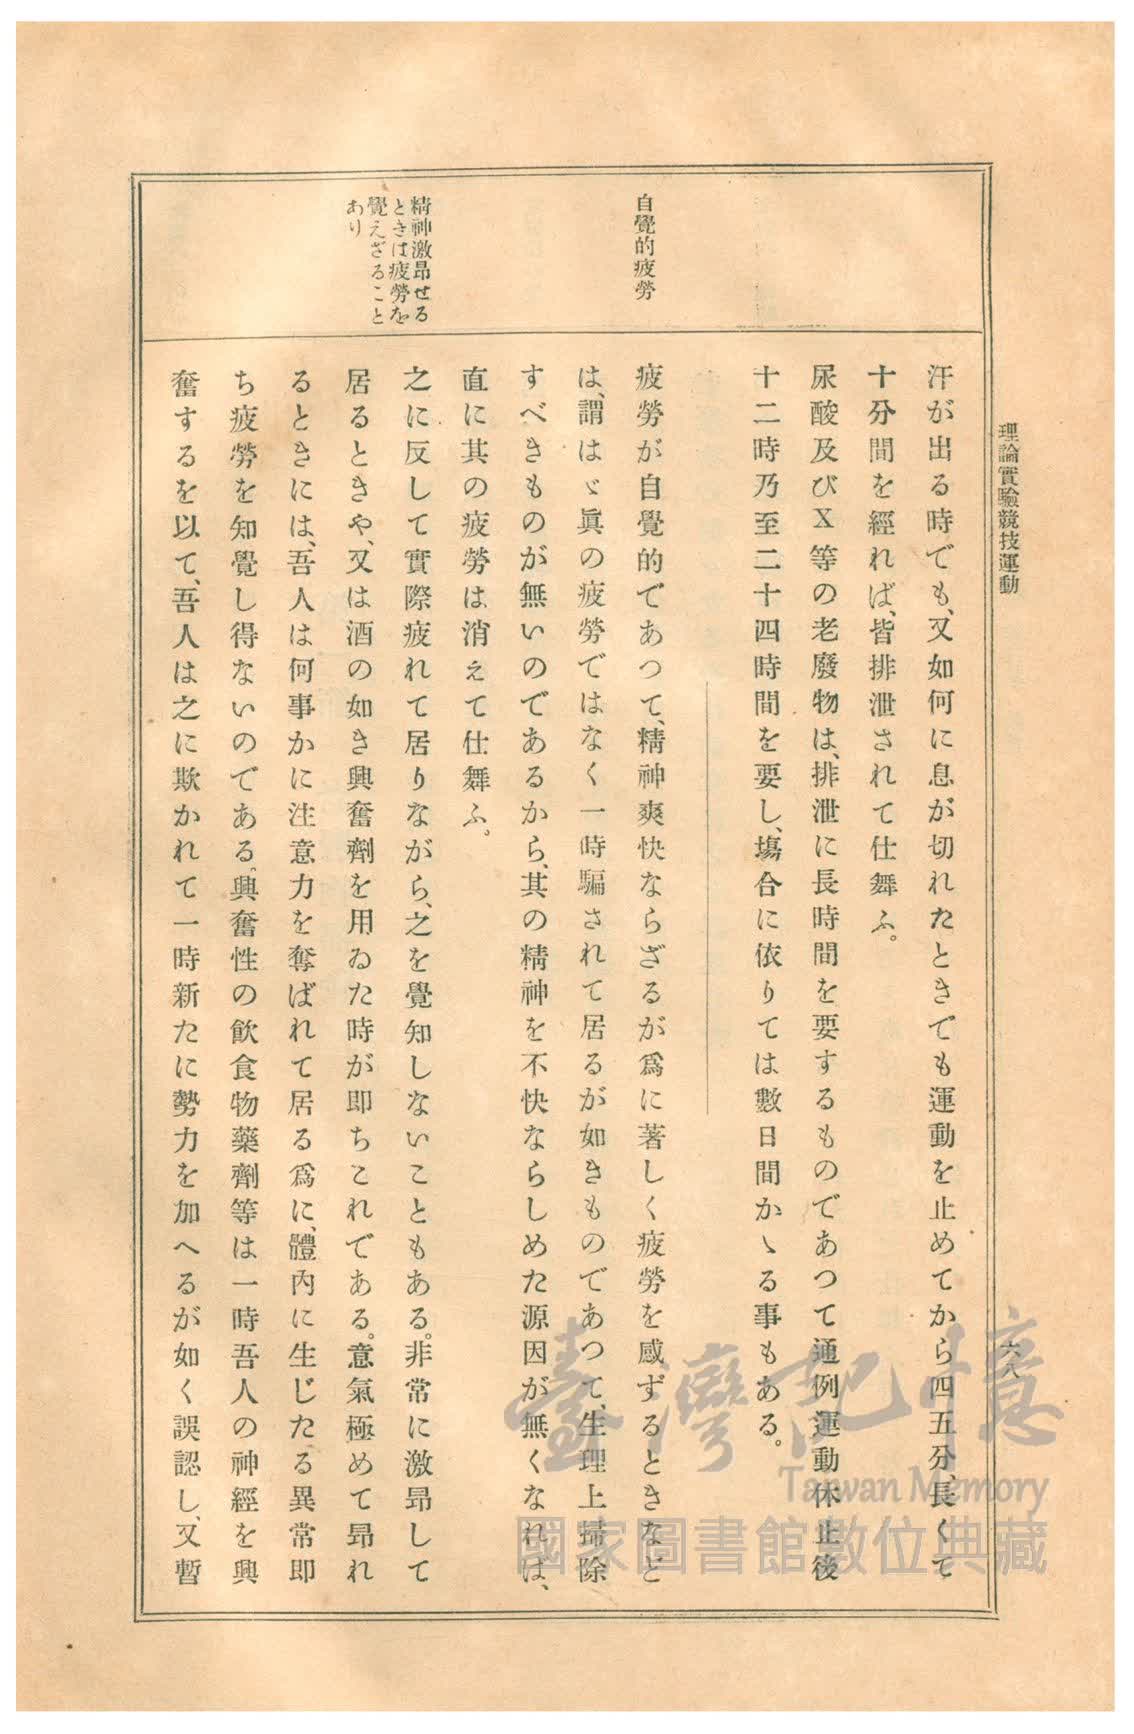 理論實驗競技運動
六八
汗が出る時でも、又如何に息が切れたときでも運動を止めてから四五分、長くて
十分間を經れば、皆排泄されて仕舞ふ。
尿酸及びX等の老廢物は、排泄に長時間を要するものであつて通例運動休止後
十二時乃至二十四時間を要し、塲合に依りては數日間かゝる事もある。
自覺的疲勞
疲勞が自覺的であつて、精神爽快ならざるが爲に著しく疲勞を感ずるときなど
は、謂はゞ眞の疲勞ではなく一時騙されて居るが如きものであつて、生理上掃除
すべきものが無いのであるから、其の精神を不快ならしめた源因が無くなれば、
直に其の疲勞は消えて仕舞ふ。
精神激昂せる
ときは疲勞を
覺えざること
あり
之に反して實際疲れて居りながら、之を覺知しないこともある。非常に激昂して
居るときや、又は酒の如き興奮劑を用ゐた時が即ちこれである。意氣極めて昂れ
るときには、吾人は何事かに注意力を奪ばれて居る爲に、體內に生じたる異常即
ち疲勞を知覺し得ないのである。興奮性の飲食物藥劑等は一時吾人の神經を興
奮するを以て、吾人は之に欺かれて一時新たに勢力を加へるが如く誤認し、又暫
臺灣記憶
Taiwan Memory
國家圖書館數位典藏